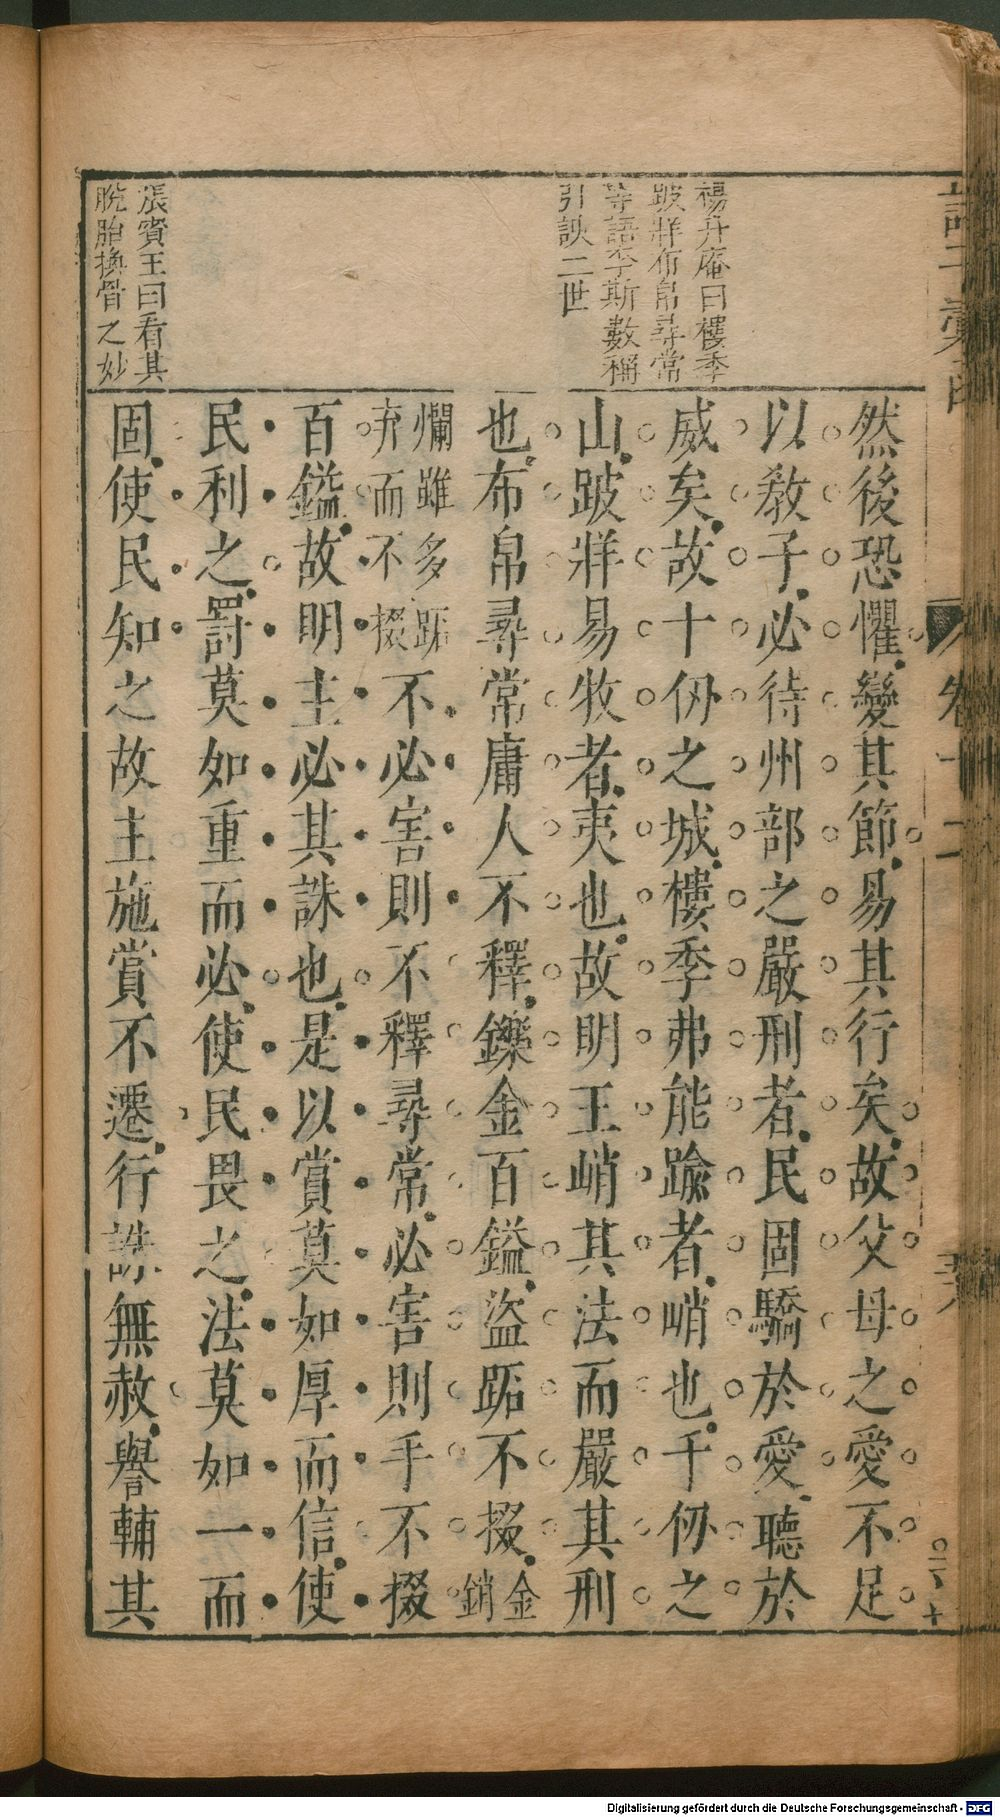 楊升庵曰樓季
跛牂布帛尋常
等語李斯數稱
引談二世
張賓王曰看其
脫胎換骨之妙
然後恐懼變其節易其行矣故父母之愛不足
以教子必待州部之嚴刑者民固驕於愛聽於
威矣故十仞之城樓季弗能踰者峭也千仞之
山跛牂易牧者夷也故明王峭其法而嚴其刑
也布帛尋常庸人不釋鑠金百鎰盜跖不掇金銷
爛雖多跖弃而不掇不必害則不釋尋常必害則手不掇
百鎰故明主必其誅也是以賞莫如厚而信使
民利之罰莫如重而必使民畏之法莫如一而
固使民知之故主施賞不遷行誅無赦譽輔其
卷十二
Digitalisierung gefördert durch die Deutsche Forschungsgemeinschaft - DFG